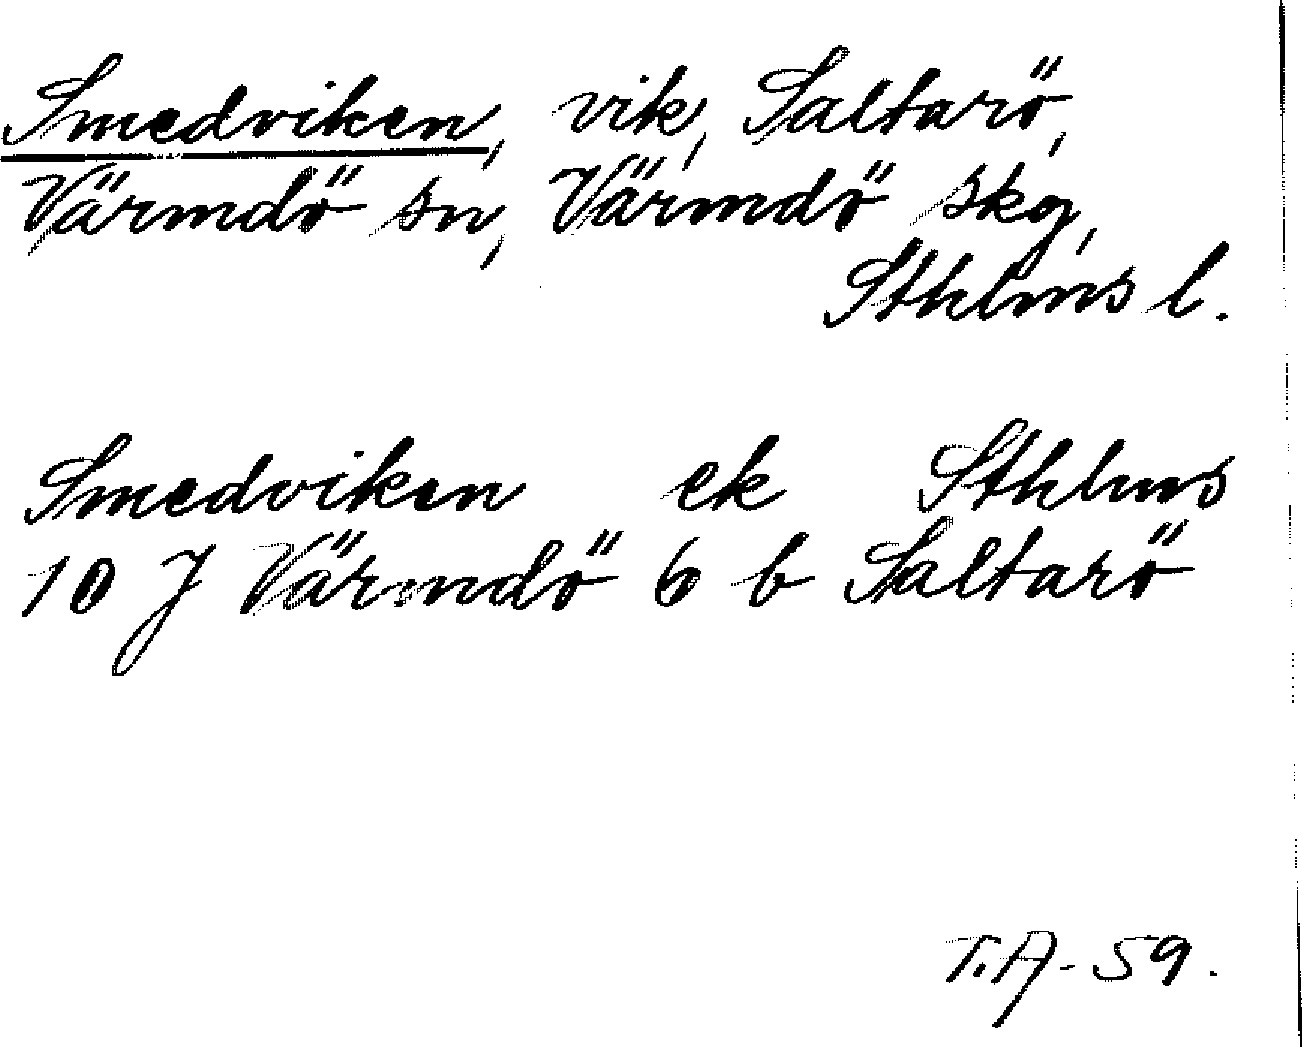 Smedviken, vik, Saltarö,
Värmdö sn, Värmdö skg,
Sthlms l.
Smedviken ek Sthlms
10 J Värmdö 6 b Saltarö
T.A-59.